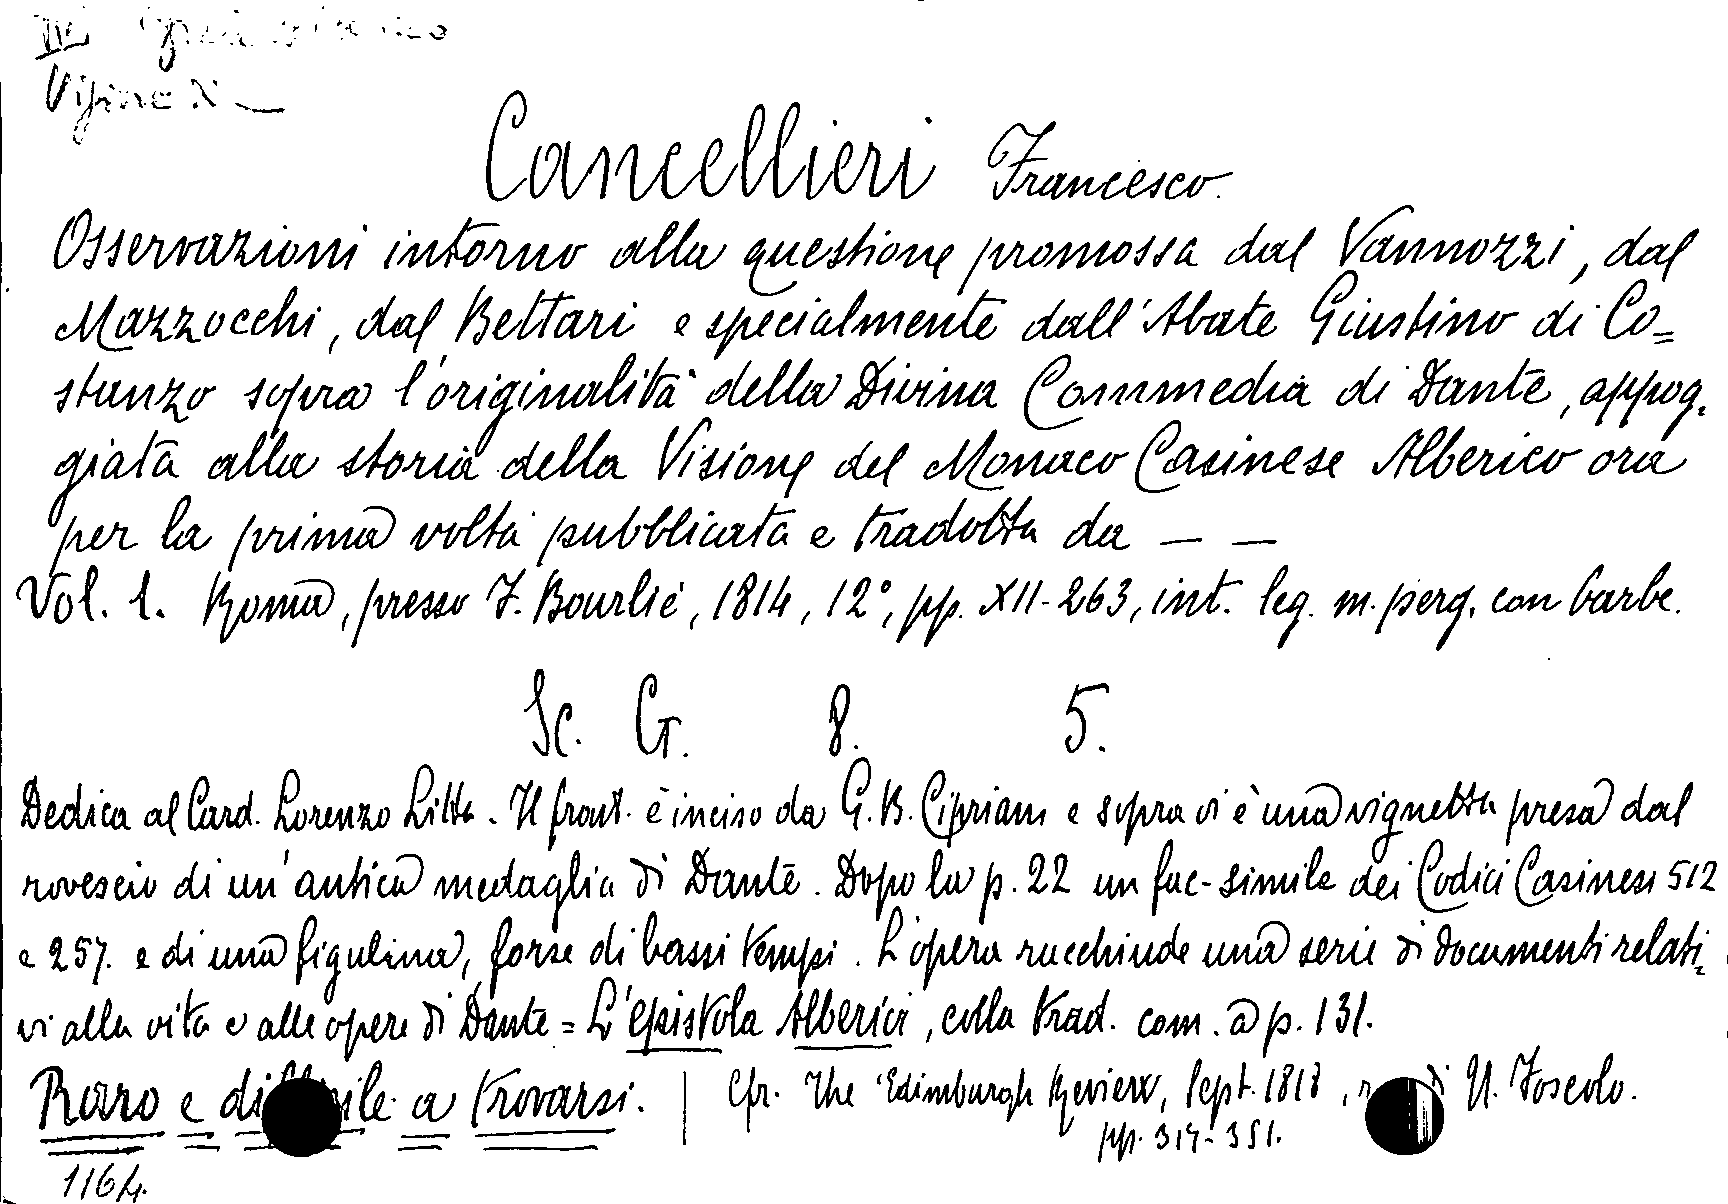 VII
Visione
Cancellieri Francesco.
Osservazioni intorno alla questione promossa dal Vannozzi, dal
Mazzocchi, dal Bettari e specialmente dall'Abate Giustino di Co=
stanzo sopra l'originalità della Divina Commedia di Dante, appog,
giata alla storia della Visione del Monaco Casinese Alberico ora
per la prima volta pubblicata e tradotta da — —
Vol. 1. Roma, presso F. Bourlié, 1814, 12°, pp. XII-263, int. leg. m. perg. con barbe.
Sc. G. 8. 5.
Dedica al Card. Lorenzo Litta. Il front. è inciso da G. B. Cipriani e sopra vi è una vignetta presa dal
rovescio di un'antica medaglia di Dante. Dopo la p. 22 un fac-simile dei Codici Casinesi 512
e 257. e di una figulina, forse di bassi tempi. L'opera racchiude una serie di documenti relati,
vi alla vita e alle opere di Dante = L'epistola Alberici, colla trad. com. a p. 131.
Raro e a trovarsi. | Cfr. The Edimburgh Review, Sept. 1818, di U. Foscolo.
pp. 317-351.
1164.